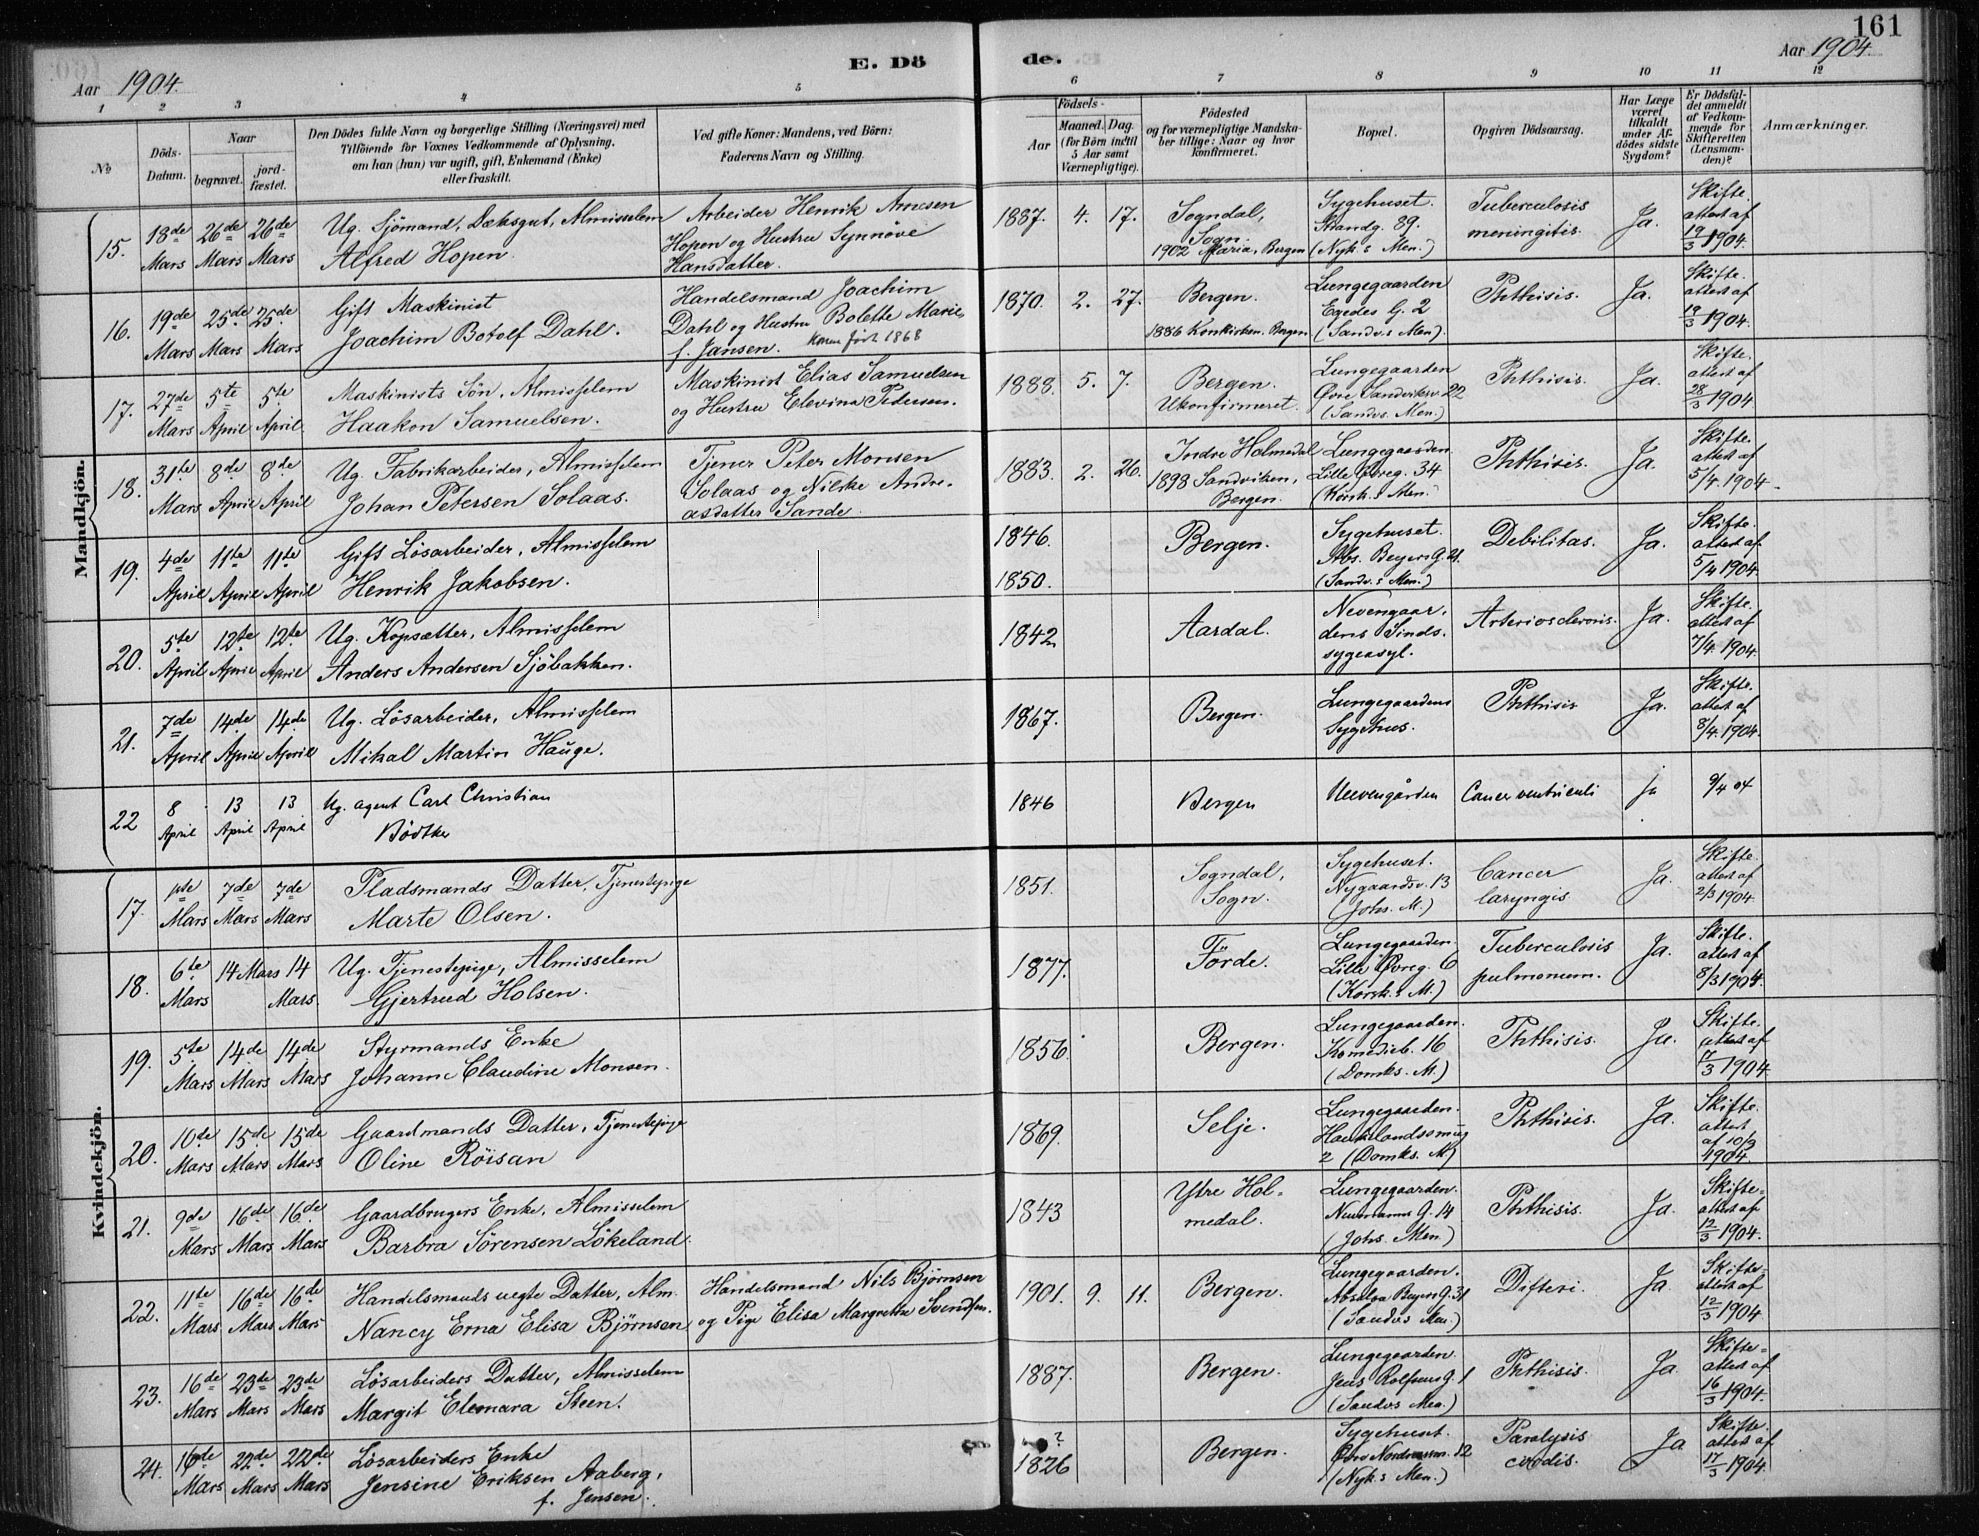 161
E. Döde.
Aar 1904.
Aar 1904.
1 2 3 4 5 6 7 8 9 10 11 12
№
Döds-Datum.
Naar
begravet.
jord-fæstet.
Den Dödes fulde Navn og borgerlige Stilling (Næringsvei) med
Tilföiende for Voxnes Vedkommende af Oplysning,
om han (hun) var ugift, gift, Enkemand (Enke)
eller fraskilt.
Ved gifte Koner: Mandens, ved Börn:
Faderens Navn og Stilling.
Födsels-
Aar
Maaned.
Dag.
(for Börn indtil
5 Aar samt
Værnepligtige).
Födested
og for værnepligtige Mandska-
ber tillige: Naar og hvor
konfirmeret.
Bopæl.
Opgiven Dödsaarsag.
Har Læge
været
tilkaldt
under Af-
dödes sidste
Sygdom?
Er Dödsfal-
det anmeldt
af Vedkom-
mende for
Skifteretten
(Lensman-
den)?
Anmærkninger.
Mandkjön.
15. 18de Mars 26de Mars 26de Mars
Ug. Sjömand, Dæksgut, Almisselem
Alfred Hopen.
Arbeider Henrik Arnesen
Hopen og Hustru Synnöve
Hansdatter.
1887. 4. 17.
Sogndal,
Sogn.
1902 Maria, Bergen
Sygehuset.
Strandg. 89.
(Nyk.s Men.)
Tuberculosis
meningitis.
Ja.
Skifte.
attest af
19/3 1904.
16. 19de Mars 25de Mars 25de Mars
Gift Maskinist
Joachim Botolf Dahl.
Handelsmand Joachim
Dahl og Hustru Bolette Marie,
f. Jansen. Konen født 1868
1870. 2. 27.
Bergen.
1886 Korskirken. Bergen
Lungegaarden
Egedes G. 2
(Sandv.s Men).
Phthisis.
Ja.
Skifte.
attest af
19/3 1904.
17. 27de Mars 5te April 5te April.
Maskinists Sön, Almisselem
Haakon Samuelsen.
Maskinist Elias Samuelsen
og Hustru Elevina Pedersen.
1888. 5. 7.
Bergen.
Ukonfirmeret.
Lungegaarden
Øvre Sandviksv. 22
(Sandv.s Men.)
Phthisis.
Ja.
Skifte.
attest af
28/3 1904
18. 31te Mars 8de April 8de April
Ug. Fabrikarbeider, Almisselem
Johan Petersen Solaas.
Tjener Peter Monsen
Solaas og Nilske Andre-
asdatter Sande.
1883. 2. 26.
Indre Holmedal
1898 Sandviken,
Bergen.
Lungegaarden.
Lille Øvreg. 34
(Korsk.s Men.
Phthisis.
Ja.
Skifte.
attest af
5/4. 1904.
19. 4de April 11te April 11te April
Gift Lösarbeider, Almisselem
Henrik Jakobsen.
1846.
1850.
Bergen.
Sygehuset.
Abs. Beyers G. 21.
(Sandv.s Men.)
Debilitas.
Ja.
Skifte.
attest af
5/4 1904.
20. 5te April 12te April 12te April
Ug. Kopsætter, Almisselem
Anders Andersen Sjöbakken.
1842
Aardal.
Nevengaar-
dens Sinds-
sygeasyl.
Arteriosclerosis.
Ja.
Skifte.
attest af
7/4. 1904.
21. 7de April 14de April 14de April
Ug. Lösarbeider, Almisselem
Mikal Martin Hauge.
1867.
Bergen.
Lungegaardens
Sygehus.
Phthisis
Ja.
Skifte.
attest af
8/4. 1904.
22 8 April 13 April 13 April
Ug. agent Carl Christian
Bödtker
1846
Bergen
Neevengården
Cancer ventriculi
ja
9/4 04
Kvindekjön.
17. 1ste Mars 7de Mars 7de Mars
Pladsmands Datter, Tjenestepige
Marte Olsen.
1851.
Sogndal,
Sogn.
Sygehuset.
Nygaardsv. 13
(Johs. M.)
Cancer
laryngis.
Ja.
Skifte.
attest af
2/3 1904.
18. 6te Mars 14 Mars 14 Mars
Ug. Tjenestepige, Almisselem
Gjertrud Holsen.
1877.
Förde.
Lungegaarden.
Lille Øvreg. 6
(Korsk.s M.)
Tuberculosis
pulmonum.
Ja.
Skifte.
attest af
8/3 1904.
19. 5te Mars 14de Mars 14de Mars
Styrmands Enke
Johanne Claudine Monsen.
1856.
Bergen.
Lungegaarden.
Komedieb. 16
(Domks. M.)
Phthisis.
Ja.
Skifte.
attest af
17/3 1904.
20. 10de Mars 15de Mars 15de Mars
Gaardmands Datter, Tjenestepige
Oline Röisan
1869.
Selje.
Lungegaarden.
Haukelandssmug
2 (Domks. M)
Phthisis.
Ja.
Skifte.
attest
af 10/3
1904.
21. 9de Mars 16de Mars 16de Mars
Gaardbrugers Enke, Almisselem
Barbra Sörensen Lökeland.
1843
Ytre Hol-
medal.
Lungegaarden.
Neumanns G. 14
(Johs. Men.)
Phthisis.
Ja.
Skifte-
attest af
12/3 1904.
22. 11te Mars 16de Mars 16de Mars
Handelsmands uegte Datter, Alm.
Nancy Erna Elisa Bjørnsen
Handelsmand Nils Bjørnsen
og Pige Elisa Margrethe Svendsen.
1901. 9. 11.
Bergen.
Lungegaarden.
Absalon Beyers G. 31
(Sandvs Men.)
Difteri.
Ja.
Skifte-
attest af
12/3 1904
23. 16de Mars 23de Mars 23de Mars
Lösarbeiders Datter, Almisselem
Margit Elemara Steen.
1887.
Bergen.
Lungegaarden.
Jens Rolfsens G. 1
(Sandvs Men.)
Phthisis.
Ja.
Skifte-
attest af
16/3 1904.
24. 16de Mars 22de Mars 22de Mars
Lösarbeiders Enke
Jensine Eriksen Aaberg,
f. Jensen.
?
1826
Bergen.
Sygehuset.
(Nyk.s Men.)
Paralysis
cordis.
Ja
Skifte.
attest af
17/3 1904.